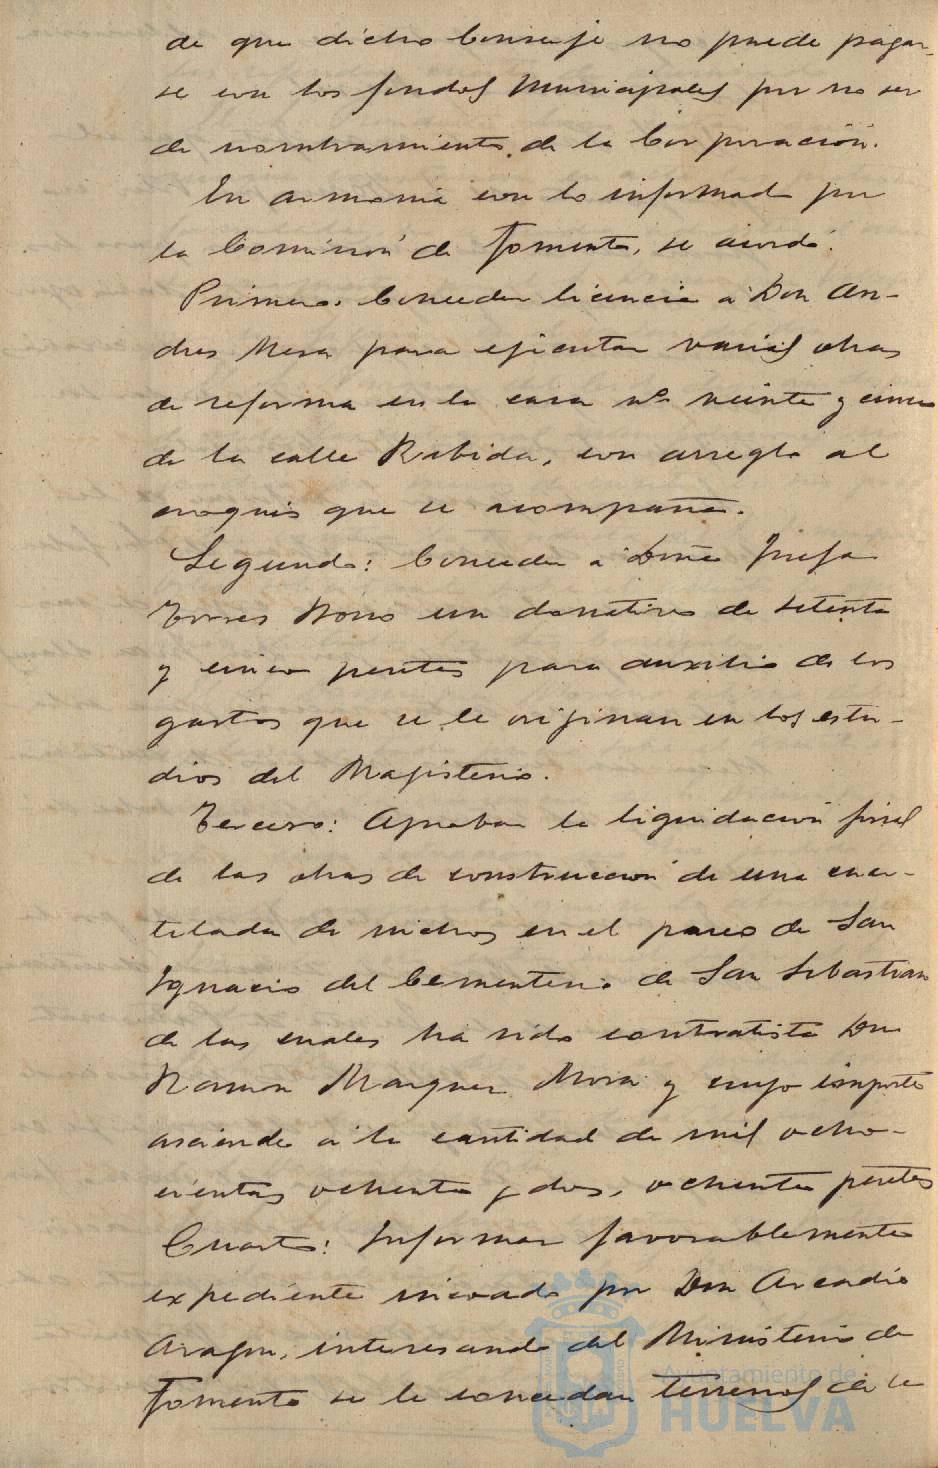 de que dicho Conserje no puede pagar-
se con los fondos Municipales por no ser
de nombramiento de la Corporación.
En armonia con lo informado por
la Comisión de Fomento, se acordó:
Primero: Conceder licencia a Don An-
dres Mesa para ejecutar varias obras
de reforma en la casa nº veinte y cinco
de la calle Rabida, con arreglo al
croquis que se acompaña.
Segundo: Conceder a Doña Josefa
Torres un donativo de setenta
y cinco pesetas para auxilio de los
gastos que se le originan en los estu-
dios del Magisterio.
Tercero: Aprobar la liquidación final
de las obras de construcción de una cuar-
telada de nichos en el paseo de San
Ignacio del Cementerio de San Sebastian
de las cuales ha sido contratista Don
Ramon Marquez Mora y cuyo importe
asciende a la cantidad de mil ocho-
cientas ochenta y dos, ochenta pesetas
Cuarto: Informar favorablemente
expediente incoado por Don Arcadio
Aragon, interesando del Ministerio de
Fomento se le concedan terrenos de
Ayuntamiento de
HUELVA